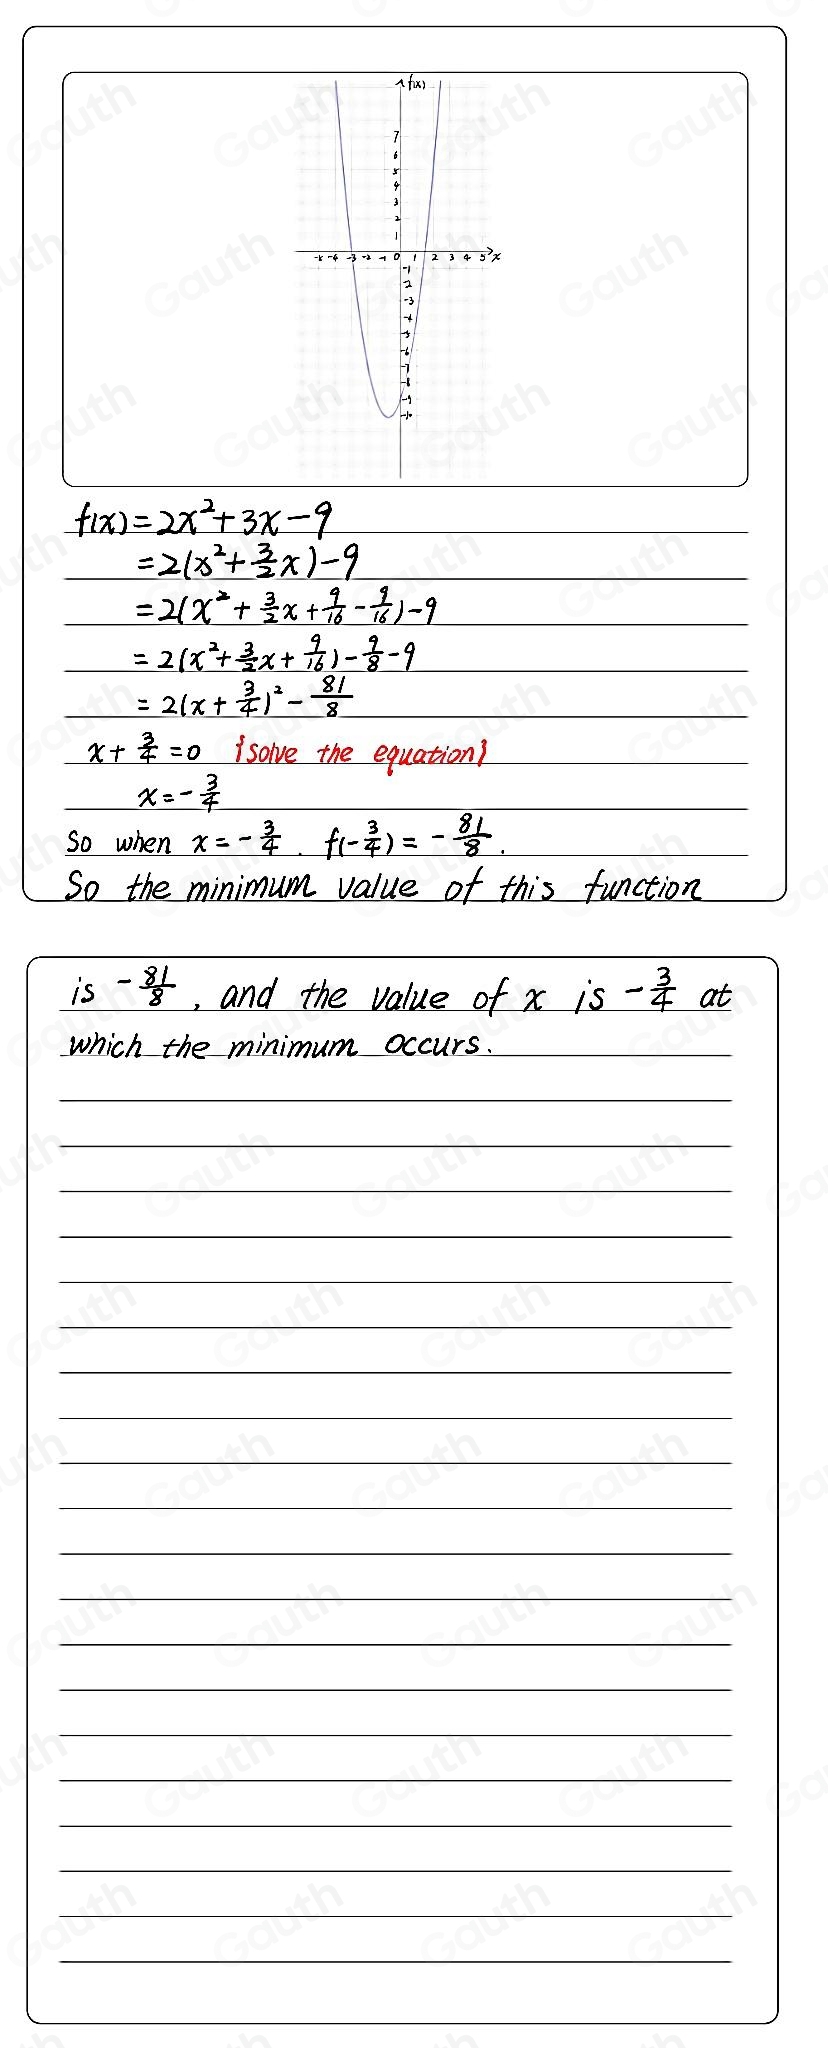 f(x)
7
6
5
4
3
2
1
-5 -4 -3 -2 -1 0 1 2 3 4 5 x
-1
-2
-3
-4
-5
-6
-7
-8
-9
-10
f(x)=2x²+3x-9
=2(x²+3/2x)-9
=2(x²+3/2x+9/16-9/16)-9
=2(x²+3/2x+9/16)-9/8-9
=2(x+3/4)²-81/8
x+3/4=0 {solve the equation}
x=-3/4
So when x=-3/4. f(-3/4)=-81/8.
So the minimum value of this function
is -81/8, and the value of x is -3/4 at
which the minimum occurs.